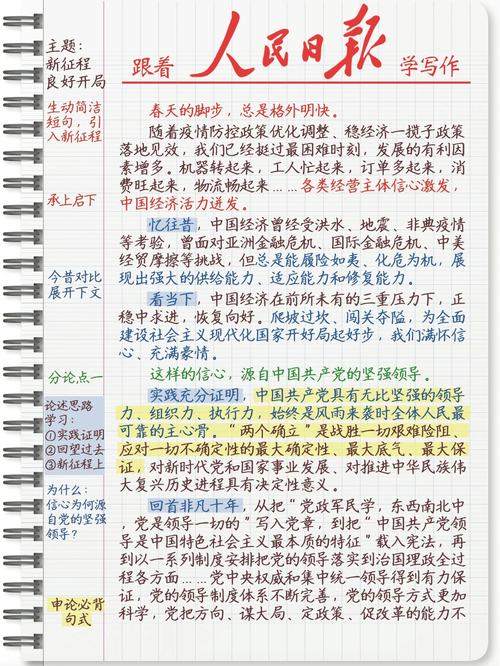 跟着 人民日报 学写作
主题：
新征程
良好开局
生动简洁
短句，引
入新征程
承上启下
今昔对比
展开下文
分论点一
论述思路
学习：
①实践证明
②回望过去
③新征程上
为什么：
信心为何源
自党的坚强
领导？
申论必背
句式
春天的脚步，总是格外明快。
随着疫情防控政策优化调整、稳经济一揽子政策
落地见效，我们已经挺过最困难时刻，发展的有利因
素增多。机器转起来，工人忙起来，订单多起来，消
费旺起来，物流畅起来……各类经营主体信心激发，
中国经济活力迸发。
忆往昔，中国经济曾经受洪水、地震、非典疫情
等考验，曾面对亚洲金融危机、国际金融危机、中美
经贸摩擦等挑战，但总是能履险如夷、化危为机，展
现出强大的供给能力、适应能力和修复能力。
看当下，中国经济在前所未有的三重压力下，正
稳中求进，恢复向好。爬坡过坎、闯关夺隘，为全面
建设社会主义现代化国家开好局起好步，我们满怀信
心、充满豪情。
这样的信心，源自中国共产党的坚强领导。
实践充分证明，中国共产党具有无比坚强的领导
力、组织力、执行力，始终是风雨来袭时全体人民最
可靠的主心骨。“两个确立”是战胜一切艰难险阻、
应对一切不确定性的最大确定性、最大底气、最大保
证，对新时代党和国家事业发展、对推进中华民族伟
大复兴历史进程具有决定性意义。
回首非凡十年，从把“党政军民学，东西南北中
，党是领导一切的”写入党章，到把“中国共产党领
导是中国特色社会主义最本质的特征”载入宪法，再
到以一系列制度安排把党的领导落实到治国理政全过
程各方面……党中央权威和集中统一领导得到有力保
证，党的领导制度体系不断完善，党的领导方式更加
科学，党把方向、谋大局、定政策、促改革的能力不